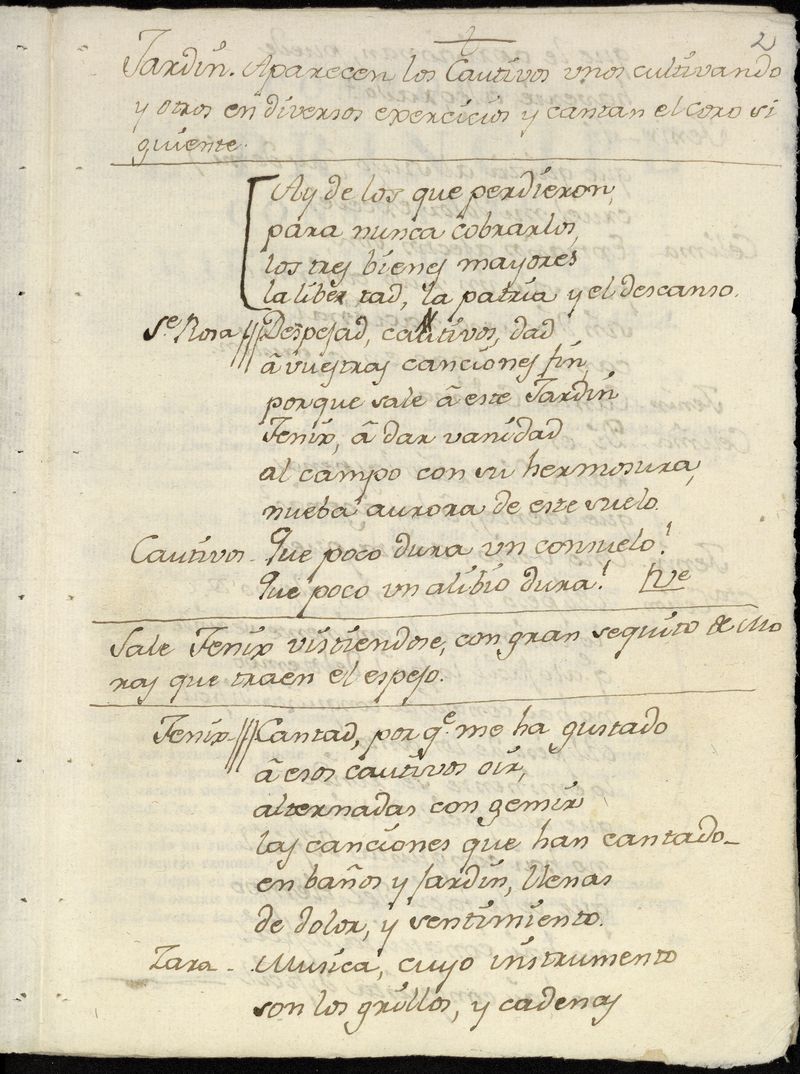 2
Jardin. Aparecen los Cautivos vnos cultivando
y otros en diversos exercicios y cantan el coro si
guiente.
Ay de los que perdieron,
para nunca cobrarlos,
los tres bienes mayores
la libertad, la patria y el descanso.
Se. Rosa // Despejad, cautivos, dad
â vuestras canciones fin,
porque sale â este Jardin
Fenix, â dar vanidad
al campo con su hermosura,
nueba aurora de este suelo.
Cautivos - Que poco dura vn consuelo!
Que poco vn alibio dura! Vve
Sale Fenix vistiendose, con gran sequito de Mo
ras que traen el espejo.
Fenix /// Cantad, por qe. me ha gustado
â esos cautivos oir,
alternadas con gemir
las canciones que han cantado
en baños y Jardin, llenas
de dolor, y sentimiento.
Zara - Musica, cuyo instrumento
son los grillos, y cadenas